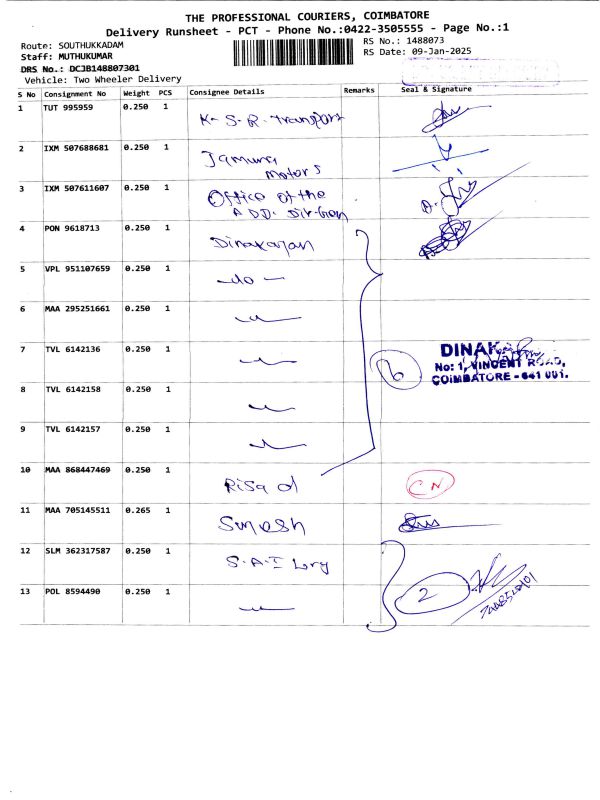 THE PROFESSIONAL COURIERS, COIMBATORE
Delivery Runsheet - PCT - Phone No.:0422-3505555 - Page No.:1
Route: SOUTHUKKADAM
RS No.: 1488073
Staff: MUTHUKUMAR
RS Date: 09-Jan-2025
DRS No.: DCJB148807301
Vehicle: Two Wheeler Delivery
S No Consignment No Weight PCS Consignee Details Remarks Seal & Signature
1 TUT 995959 0.250 1 K-S-R-Transport
2 IXM 507688681 0.250 1 Jamuna
Motors
3 IXM 507611607 0.250 1 Office of the
ADD.
4 PON 9618713 0.250 1 Dinakaran
5 VPL 951107659 0.250 1 -do-
6 MAA 295251661 0.250 1
7 TVL 6142136 0.250 1
DINAK
No: 1, VINCENT ROAD,
COIMBATORE - 641 001.
6
8 TVL 6142158 0.250 1
9 TVL 6142157 0.250 1
10 MAA 868447469 0.250 1 CN
11 MAA 705145511 0.265 1 Smash
12 SLM 362317587 0.250 1 S.A.I
13 POL 8594490 0.250 1 2